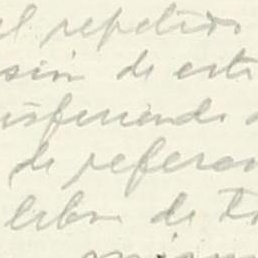 el repetido
sión de este
nsfiriendo
de referen
libro de t